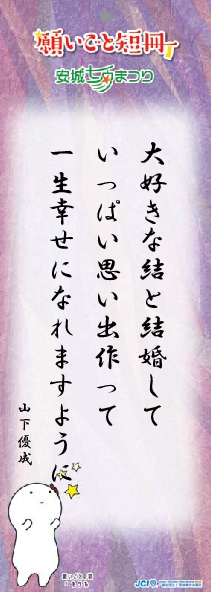 願いごと短冊
安城七夕まつり
大好きな結と結婚して
いっぱい思い出作って
一生幸せになれますように
山下優成
JCI